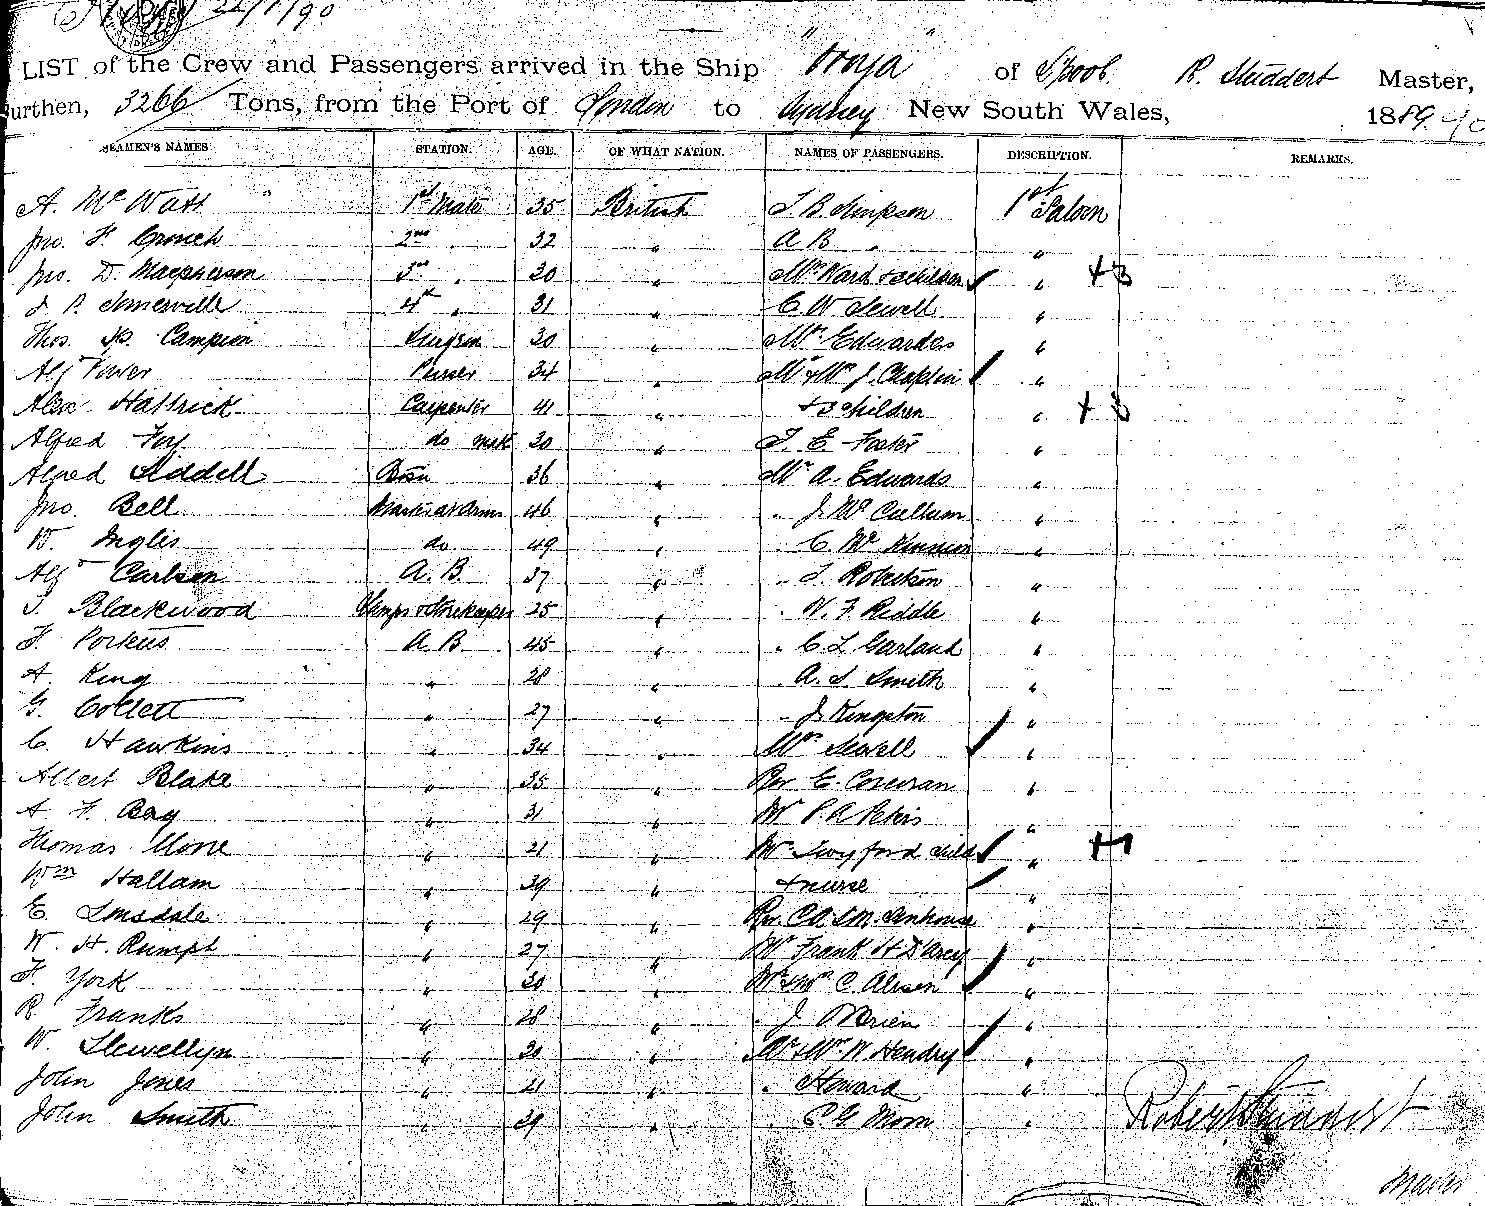 22/1/90
LIST of the Crew and Passengers arrived in the Ship "Oroya" of L'pool R. Studdert Master,
Burthen, 3266 Tons, from the Port of London to Sydney New South Wales, 1889-90
SEAMEN'S NAMES STATION. AGE. OF WHAT NATION. NAMES OF PASSENGERS. DESCRIPTION. REMARKS.
A. McWatt 1st Mate 35 British J B Simpson 1st Saloon
Jno. F. Crouch 2nd " 32 " A B " "
Jno. D. Macpherson 3rd " 30 " Mrs Ward + 3 children " +3
J. P. Somerville 4th " 31 " C W Sewell "
Thos. Campion Surgeon 30 " Mrs Edwardes "
Alf Power Purser 34 " Mr & Mrs J. Chaplin "
Alex Hattrick Carpenter 41 " + 3 children " +3
Alfred Fry do mate 30 " T. E. Foster "
Alfred Liddell Bosn 36 " Mr A. Edwards "
Jno. Bell Master at Arms 46 " " J. McCallum "
W. Inglis do 49 " " C. McKinnon "
Alf Carlsen A.B. 37 " " J. Robertson "
T. Blackwood Lamps & Storekeeper 25 " " W. F. Riddle "
F. Porteus A.B. 45 " " C L Garland "
A. King " 28 " A. S. Smith "
G. Collett " 27 " " J. Kingston "
C. Hawkins " 34 " Mrs Sewell "
Albert Blake " 35 " Rev E. Corcoran "
A. F. Bag " 31 " Mr P A Peters "
Thomas Mone " 21 " Mr Swyford child " +1
Wm Hallam " 39 " + nurse "
E. Lonsdale " 29 " Rev. Senhouse "
W. H. Rumpf " 27 " Mr Frank H D'Arcy "
F. York " 30 " Mr & Mrs C. Alison "
R. Franks " 28 " " J O'Brien "
W. Llewellyn " 30 " Mr & Mrs W Hendry "
John Jones " 21 " " Howard "
John Smith " 29 " " C E Moon "
Robert Studdert
Master